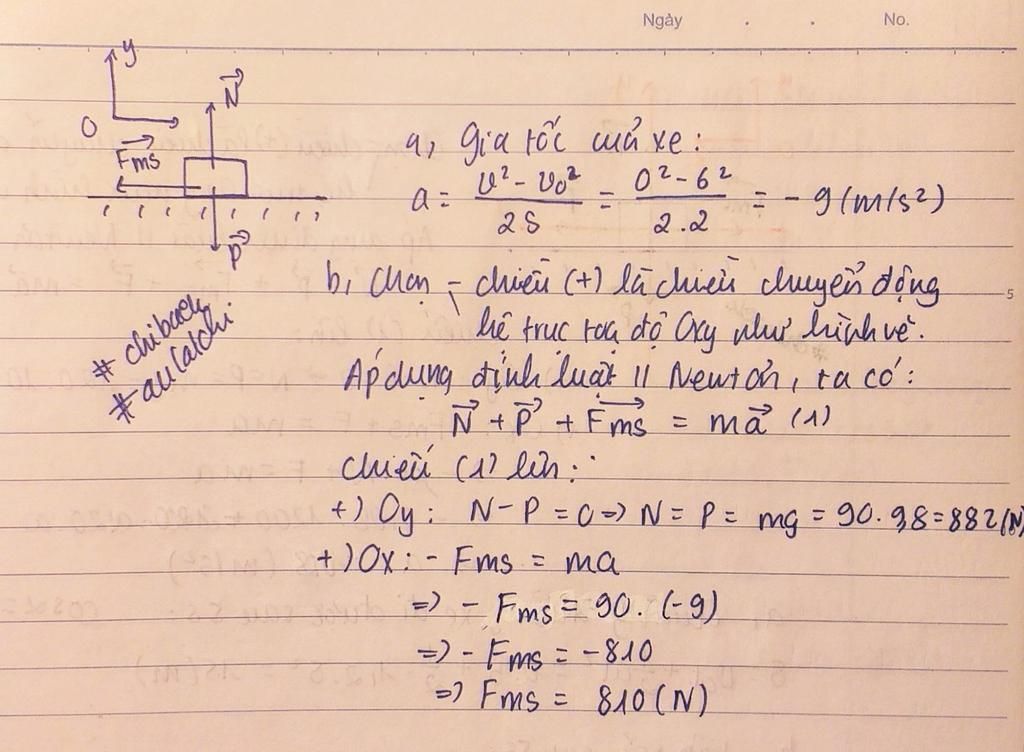 Ngày . . No.
y
N
O
Fms
P
a, Gia tốc của xe:
a = v² - v₀² / 2S = 0² - 6² / 2.2 = - 9 (m/s²)
b, Chọn - chiều (+) là chiều chuyển động
hệ trục toạ độ Oxy như hình vẽ.
5
# chibach
# aulatchi
Áp dụng định luật II Newtơn, ta có:
N + P + Fms = ma (1)
Chiếu (1) lên:
+) Oy: N - P = 0 => N = P = mg = 90.9,8 = 882 (N)
+) Ox: - Fms = ma
=> - Fms = 90. (-9)
=> - Fms = -810
=> Fms = 810 (N)